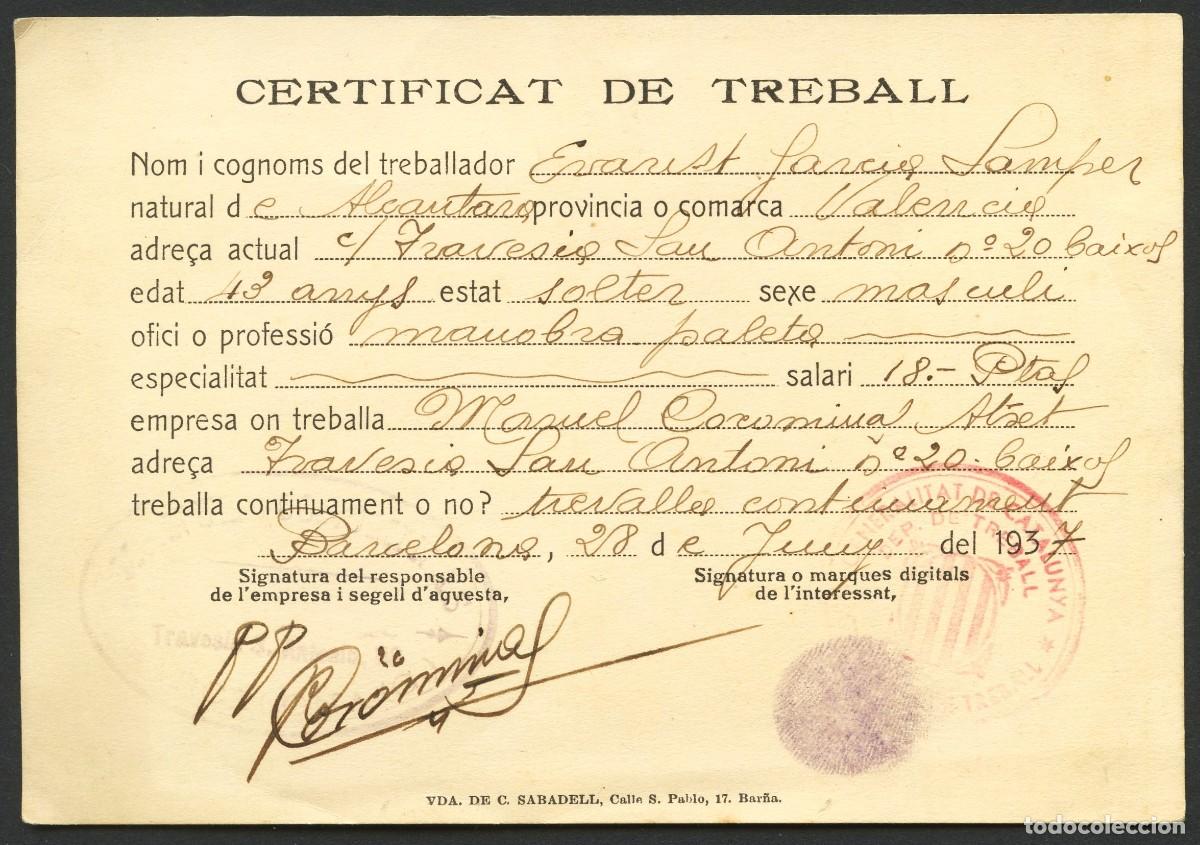 CERTIFICAT DE TREBALL
Nom i cognoms del treballador Evarist Garcia Samper
natural de Alcantara provincia o comarca Valencia
adreça actual c/ Travesia San Antoni nº 20 baixos
edat 43 anys estat solter sexe masculi
ofici o professió manobra paleta
especialitat salari 18.- Ptas
empresa on treballa Manuel Corominas
adreça Travesia San Antoni Nº 20. baixos
treballa continuament o no? trevalla continuament
Barcelona, 28 de Juny del 1937
Signatura del responsable de l'empresa i segell d'aquesta,
Signatura o marques digitals de l'interessat,
PP
Corominas
GENERALITAT DE CATALUNYA
DEP. DE TREBALL
Travesia
VDA. DE C. SABADELL, Calle S. Pablo, 17. Barña.
todocoleccion